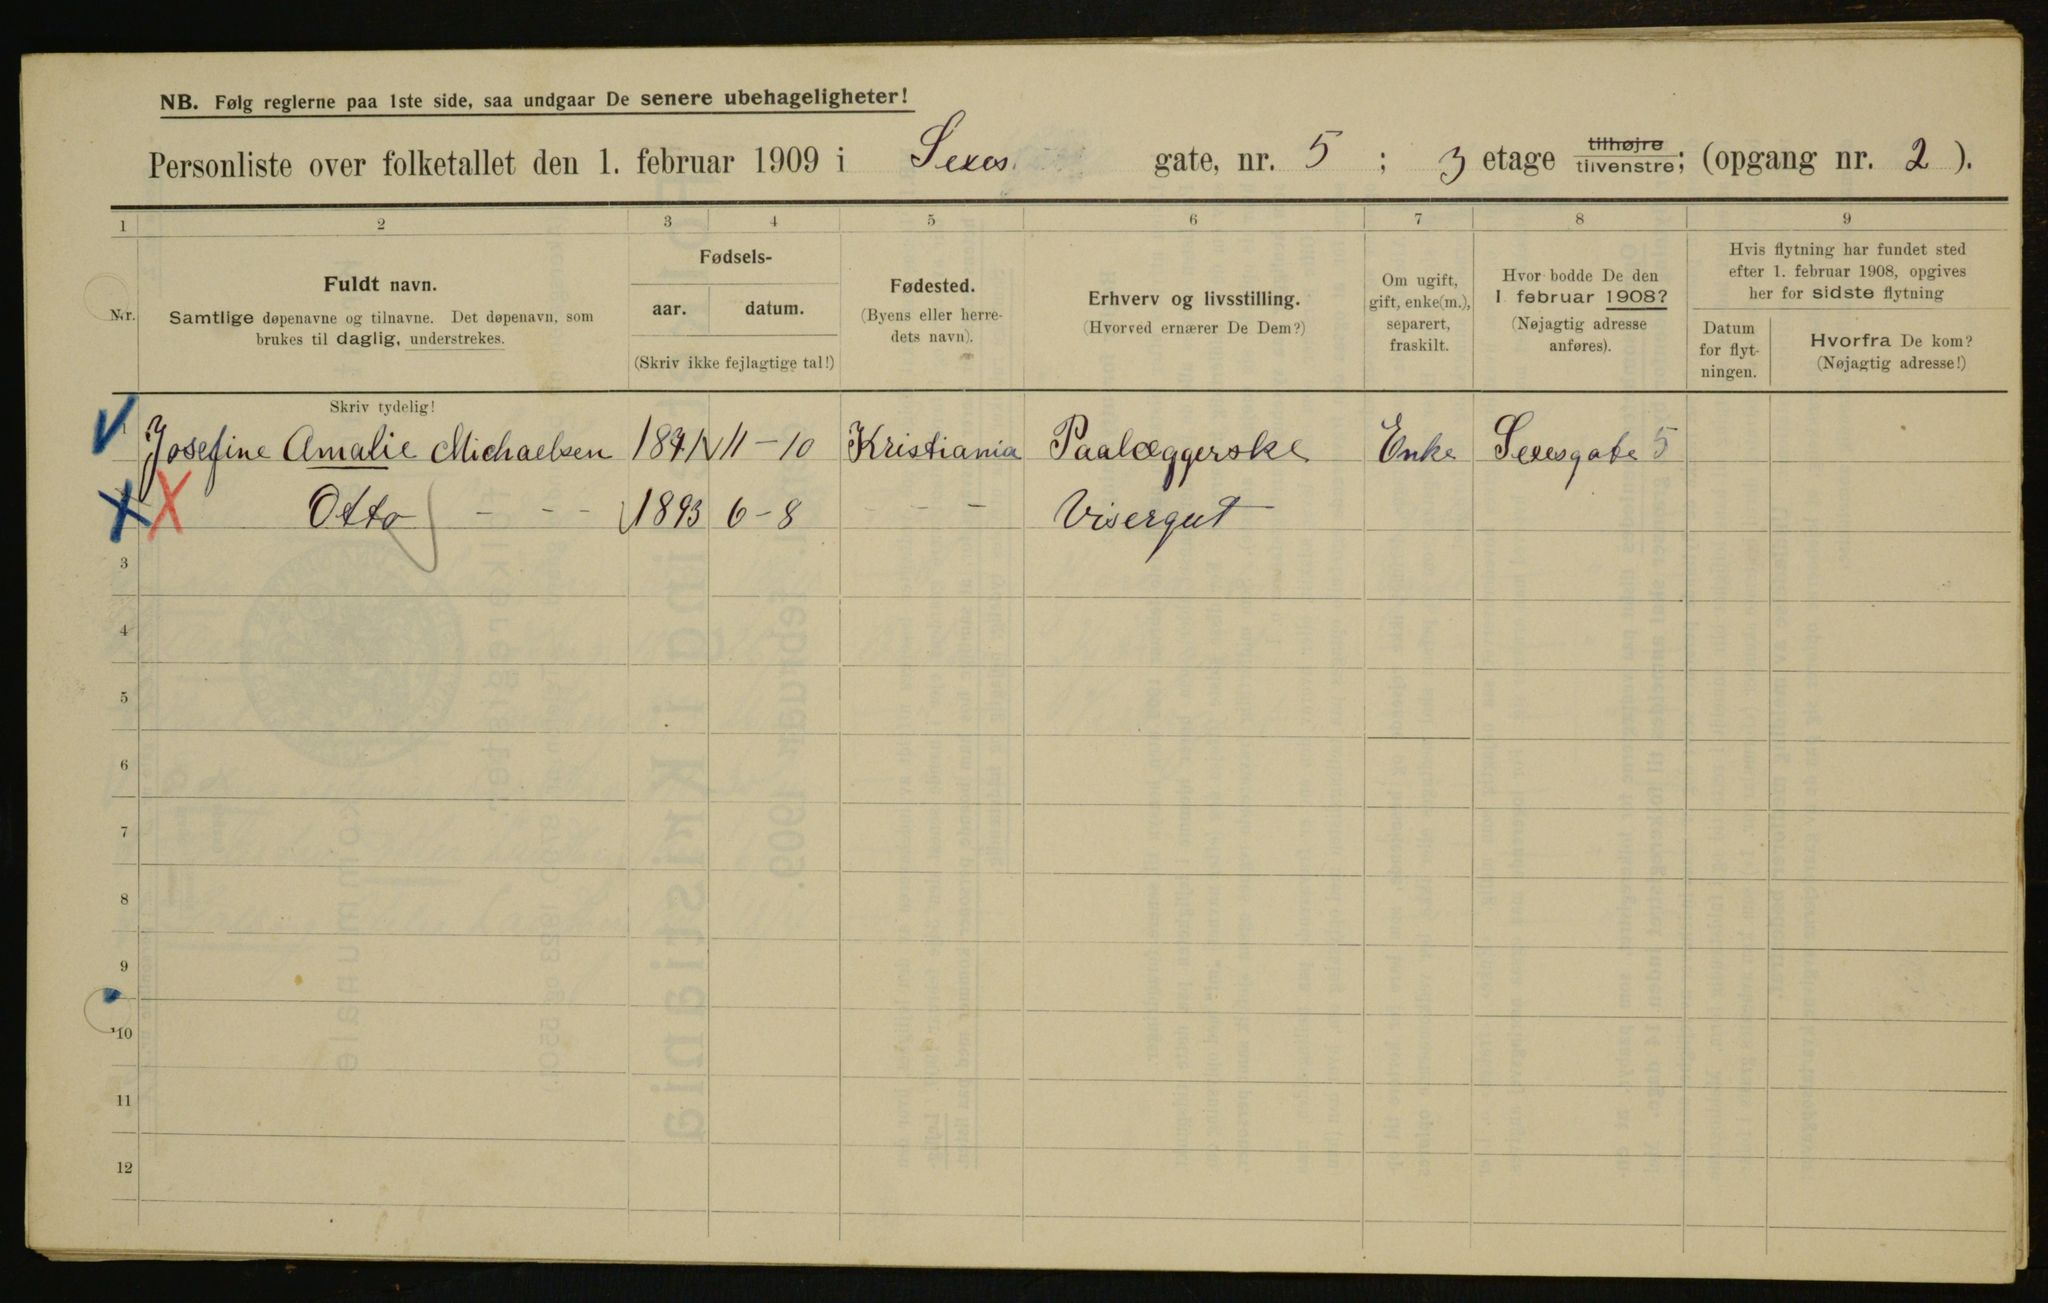 NB. Følg reglerne paa 1ste side, saa undgaar De senere ubehageligheter!
Personliste over folketallet den 1. februar 1909 i Sexes gate, nr. 5 ; 3 etage tilhøjre tilvenstre; (opgang nr. 2 ).
1 2 3 4 5 6 7 8 9
Nr.
Fuldt navn.
Samtlige døpenavne og tilnavne. Det døpenavn, som
brukes til daglig, understrekes.
Fødsels-
aar. datum.
(Skriv ikke fejlagtige tal!)
Fødested.
(Byens eller herre-
dets navn).
Erhverv og livsstilling.
(Hvorved ernærer De Dem?)
Om ugift,
gift, enke(m.),
separert,
fraskilt.
Hvor bodde De den
1 februar 1908?
(Nøjagtig adresse
anføres).
Hvis flytning har fundet sted
efter 1. februar 1908, opgives
her for sidste flytning
Datum
for flyt-
ningen.
Hvorfra De kom?
(Nøjagtig adresse!)
Skriv tydelig!
1 Josefine Amalie Michaelsen 1871 11-10 Kristiania Paalæggerske Enke Sexesgate 5
Otto - - - 1893 6-8 - - - Visergut
3
4
5
6
7
8
9
10
11
12